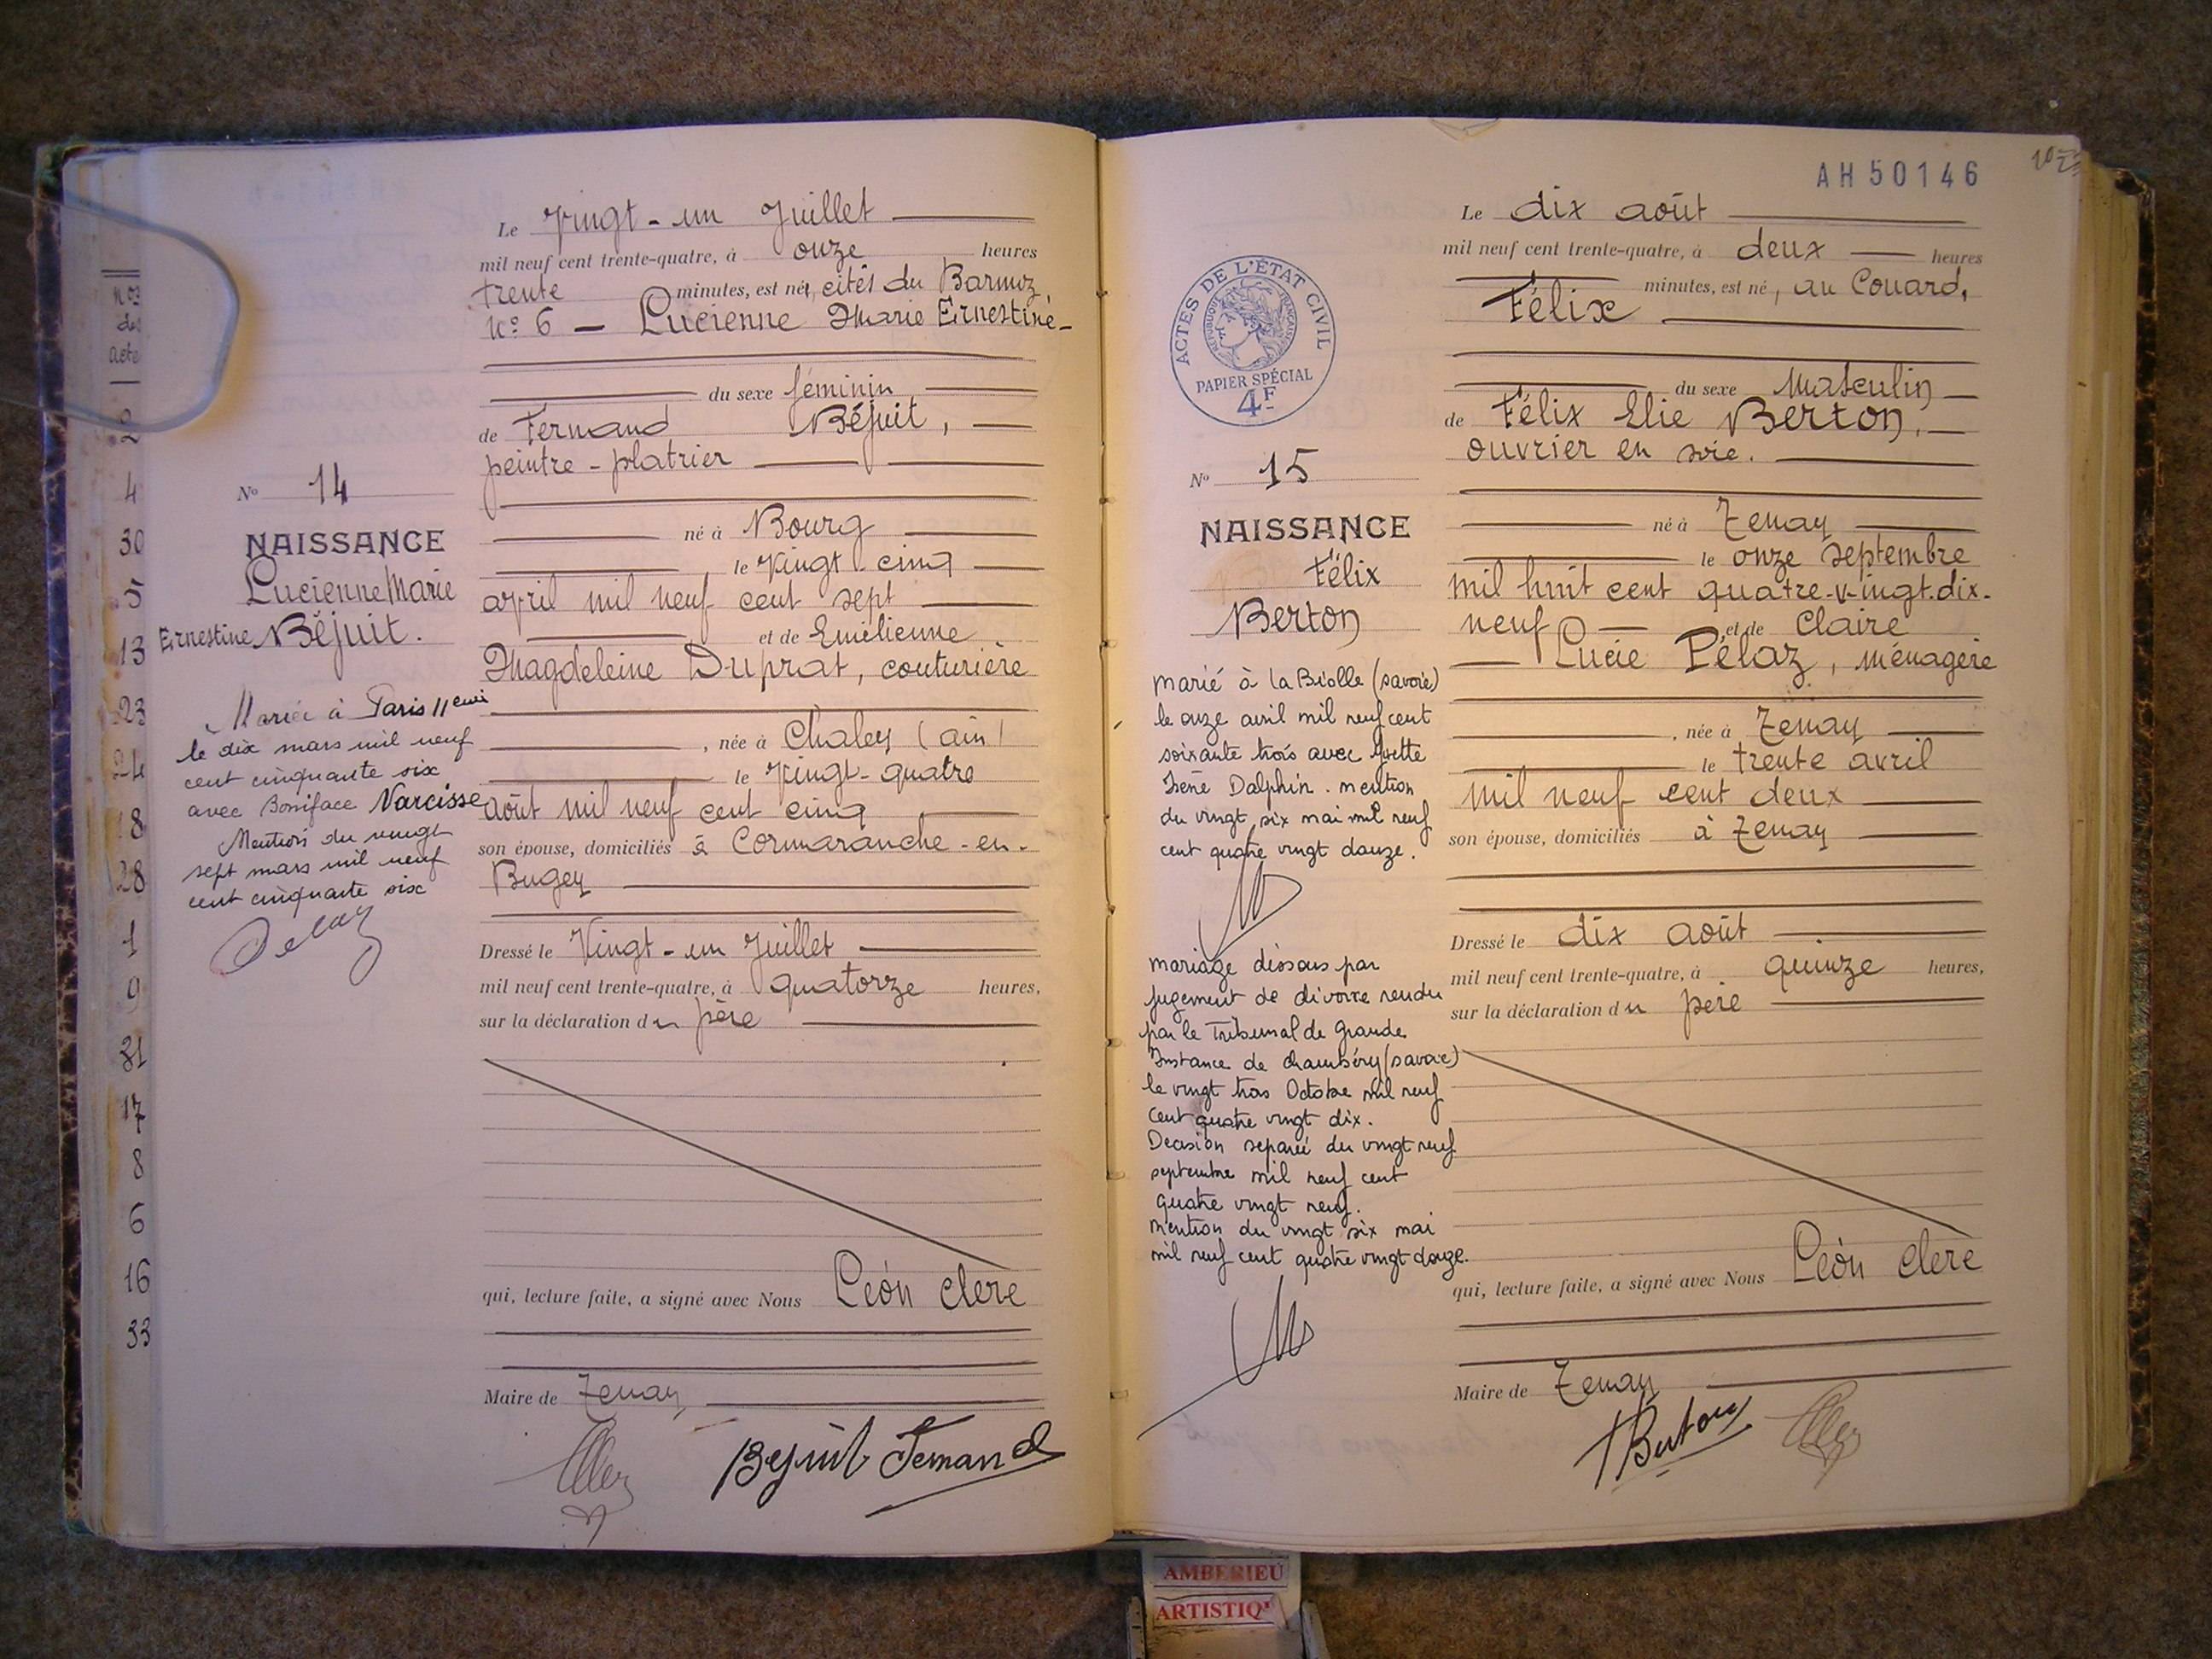 nos
des
acte
2
4
30
5
13
23
24
18
28
1
9
31
17
8
6
16
33
No 14
NAISSANCE
Lucienne Marie
Ernestine Béjuit.
Mariée à Paris 11eme
le dix mars mil neuf
cent cinquante six
avec Boniface Narcisse
Mention du vingt
sept mars mil neuf
cent cinquante six
Le Vingt-un Juillet
mil neuf cent trente-quatre, à onze heures
trente minutes, est née, cités du Barmoz,
No 6 — Lucienne Marie Ernestine-
du sexe féminin
de Fernand Béjuit,
peintre-platrier
né à Bourg
le Vingt-cinq
avril mil neuf cent sept
et de Emélienne
Magdeleine Duprat, couturière
, née à Chaley (ain)
le Vingt-quatre
août mil neuf cent cinq
son épouse, domiciliés à Cormaranche-en-
Bugey
Dressé le Vingt-un Juillet
mil neuf cent trente-quatre, à quatorze heures,
sur la déclaration du père
qui, lecture faite, a signé avec Nous Léon Clerc
Maire de Tenay
Bejuit Fernand
AH 50146
ACTES DE L'ÉTAT CIVIL
RÉPUBLIQUE FRANÇAISE
PAPIER SPÉCIAL
4F
No 15
NAISSANCE
Félix
Berton
marié à la Biolle (savoie)
le onze avril mil neuf cent
soixante trois avec Yvette
Irène Dalphin. mention
du vingt six mai mil neuf
cent quatre vingt douze.
mariage dissous par
jugement de divorce rendu
par le Tribunal de Grande
Instance de chambéry (savoie)
le vingt trois Octobre mil neuf
cent quatre vingt dix.
Decision separée du vingt neuf
septembre mil neuf cent
quatre vingt neuf.
mention du vingt six mai
mil neuf cent quatre vingt douze.
Le dix août
mil neuf cent trente-quatre, à deux heures
minutes, est né, au Couard,
Félix
du sexe Masculin
de Félix Elie Berton,
ouvrier en soie.
né à Tenay
le onze septembre
mil huit cent quatre-vingt-dix-
neuf et de Claire
Lucie Pélaz, ménagère
, née à Tenay
le trente avril
mil neuf cent deux
son épouse, domiciliés à Tenay
Dressé le dix août
mil neuf cent trente-quatre, à quinze heures,
sur la déclaration du père
qui, lecture faite, a signé avec Nous Léon Clerc
Maire de Tenay
FBerton
AMBERIEU
ARTISTIQ